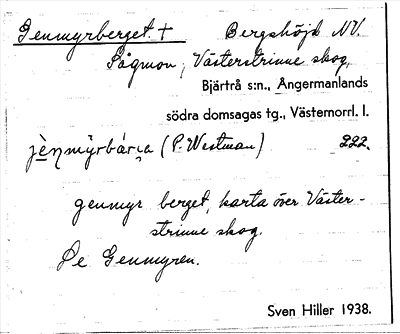 Genmyrberget. + Bergshöjd NV.
Sågmon, Västerstrinne skog,
Bjärtrå s:n., Ångermanlands
södra domsagas tg., Västernorrl. l.
jènmyrbárⱬa (P. Westman) 222.
genmyr berget, karta över Väster-
strinne skog.
Se Genmyren.
Sven Hiller 1938.